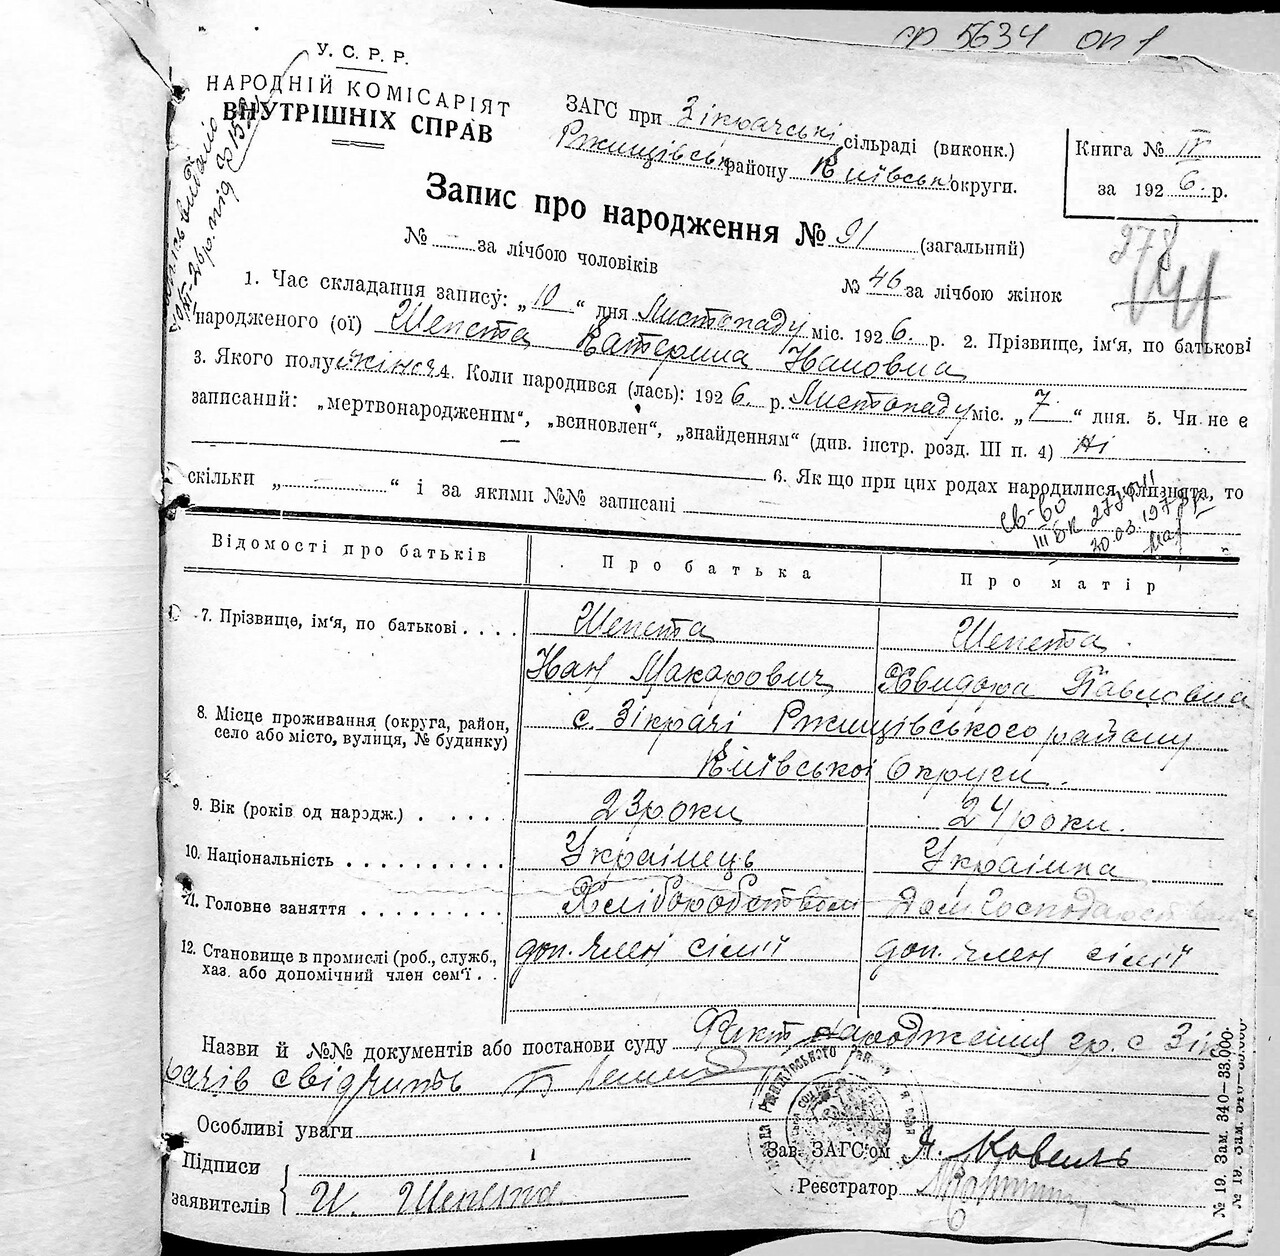 ф 5634 оп 1
У. С. Р. Р.
НАРОДНІЙ КОМІСАРІЯТ
ВНУТРІШНІХ СПРАВ
ЗАГС при Зікрачські сільраді (виконк.)
Ржищівськ району Київськ округи.
Книга № IV
за 1926 р.
Запис про народження № 91 (загальний)
278
№ за лічбою чоловіків
№ 46 за лічбою жінок
1. Час складання запису: „10“ дня Листопаду міс. 1926 р. 2. Прізвище, ім'я, по батькові
народженого (ої) Шепета Катерина Івановна
3. Якого полу жіноч. 4. Коли народився (лась): 1926 р. Листопаду міс. „7“ дня. 5. Чи не є
записаний: „мертвонародженим“, „всиновлен“, „знайденням“ (див. інстр. розд. III п. 4) Ні
6. Як що при цих родах народилися близнята, то
скільки „ “ і за якими №№ записані
св-во
III БК
20.03.1978р
Відомості про батьків
Про батька
Про матір
7. Прізвище, ім'я, по батькові
Шепета
Шепета
Іван Макарович
Явидоха Павловна
8. Місце проживання (округа, район,
село або місто, вулиця, № будинку)
с. Зікрачі Ржищівського району
Київської Округи.
9. Вік (років од народж.)
23 роки
24 роки.
10. Національність
Українець
Українка
11. Головне заняття
Хліборобством
Дом Господарством
12. Становище в промислі (роб., служб.,
хаз. або допомічний член сем'ї
доп. член сім'ї
доп. член сім'ї
Назви й №№ документів або постанови суду Факт народження гр. с Зік
рачів свідчить
Особливі уваги
Підписи
заявителів
И. Шепета
Зав. ЗАГС'ом А. Коваль
Реєстратор
№ 19. Зам. 340—33.000